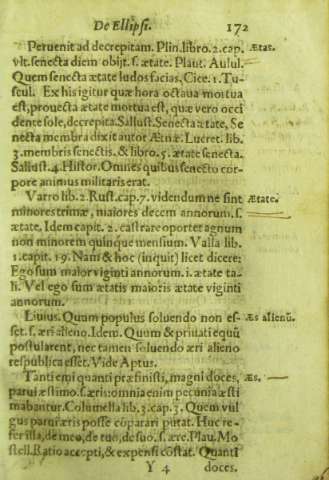 De Ellipsi. 172
Peruenit ad decrepitam. Plin. libro. 2. cap. Ætas.
vlt. senecta diem obijt. s. ætate. Plaut. Aulul.
Quem senecta ætate ludos facias, Cice. 1. Tu-
scul. Ex his igitur quæ hora octaua mortua
est, prouecta ætate mortua est, quæ vero occi
dente sole, decrepita. Sallust. Senecta ætate, Se
necta membra dixit autor Ætnæ. Lucret. lib.
3. membris senectis. & libro. 5. ætate senecta.
Sallust. 4. Histor. Omnes quibus senecto cor-
pore animus militaris erat.
Varro lib. 2. Rust. cap. 7. videndum ne sint Ætate.
minores trimæ, maiores decem annorum. s.
ætate. Idem capit. 2. castrare oportet agnum
non minorem quinque mensium. Valla lib.
1. capit. 19. Nam & hoc (inquit) licet dicere:
Ego sum maior viginti annorum. i. ætate ta-
li. Vel ego sum ætatis maioris ætate viginti
annorum.
Liuius. Quum populus soluendo non es- Æs alienū.
set. s. æri alieno. Idem. Quum & priuati equū
postularent, nec tamen soluendo æri alieno
respublica esset. Vide Aptus.
Tanti emi quanti præfinisti, magni doces, Æs.
parui æstimo. s. æris: omnia enim pecunia æsti
mabantur. Columella lib. 3. cap. 3. Quem vul
gus parui æris posse cōparari putat. Huc re-
fer illa, de meo, de tuo, de suo. s. ære. Plau. Mo
stell. Ratio accepti, & expensi cōstat. Quanti
Y 4 doces.